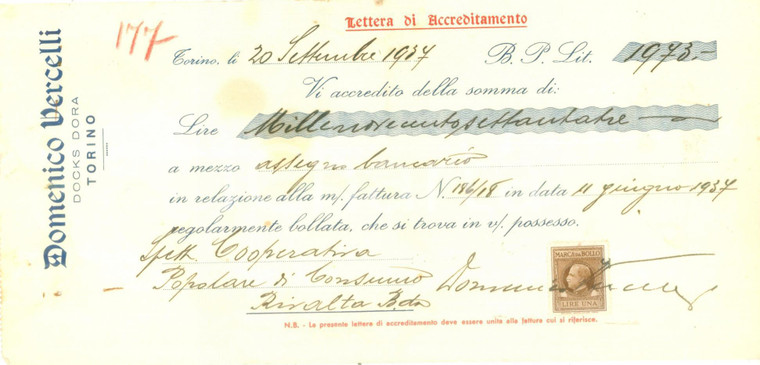 Lettera di Accreditamento
177
Domenico Vercelli
DOCKS DORA
TORINO
Torino, li 20 Settembre 1937 B. P. Lit. 1973.-
Vi accredito della somma di:
Lire Millenovecentosettantatre
a mezzo assegno bancario
in relazione alla m/. fattura N. 186/18 in data 11 giugno 1937
regolarmente bollata, che si trova in v/. possesso.
Spett. Cooperativa
Popolare di Consumo
Rivalta Bda
Domenico Vercelli
MARCA DA BOLLO
LIRE UNA
N.B. - La presente lettera di accreditamento deve essere unita alla fattura cui si riferisce.